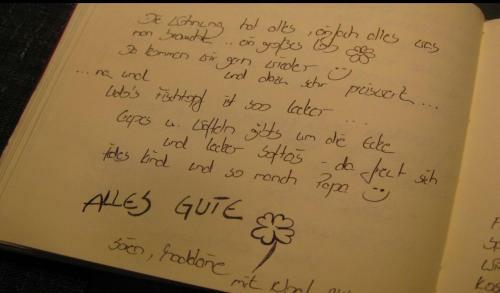 Die Wohnung hat alles, einfach alles was
man braucht... ein großes Lob
So kommen wir gern wieder
... na und und dazu sehr preiswert...
Udo's Fischtopf ist soo lecker...
Crepes u. Waffeln gibts um die Ecke
und lecker Softeis - da freut sich
jedes Kind und so manch Papa
ALLES GUTE
Sören, Madeleine
mit